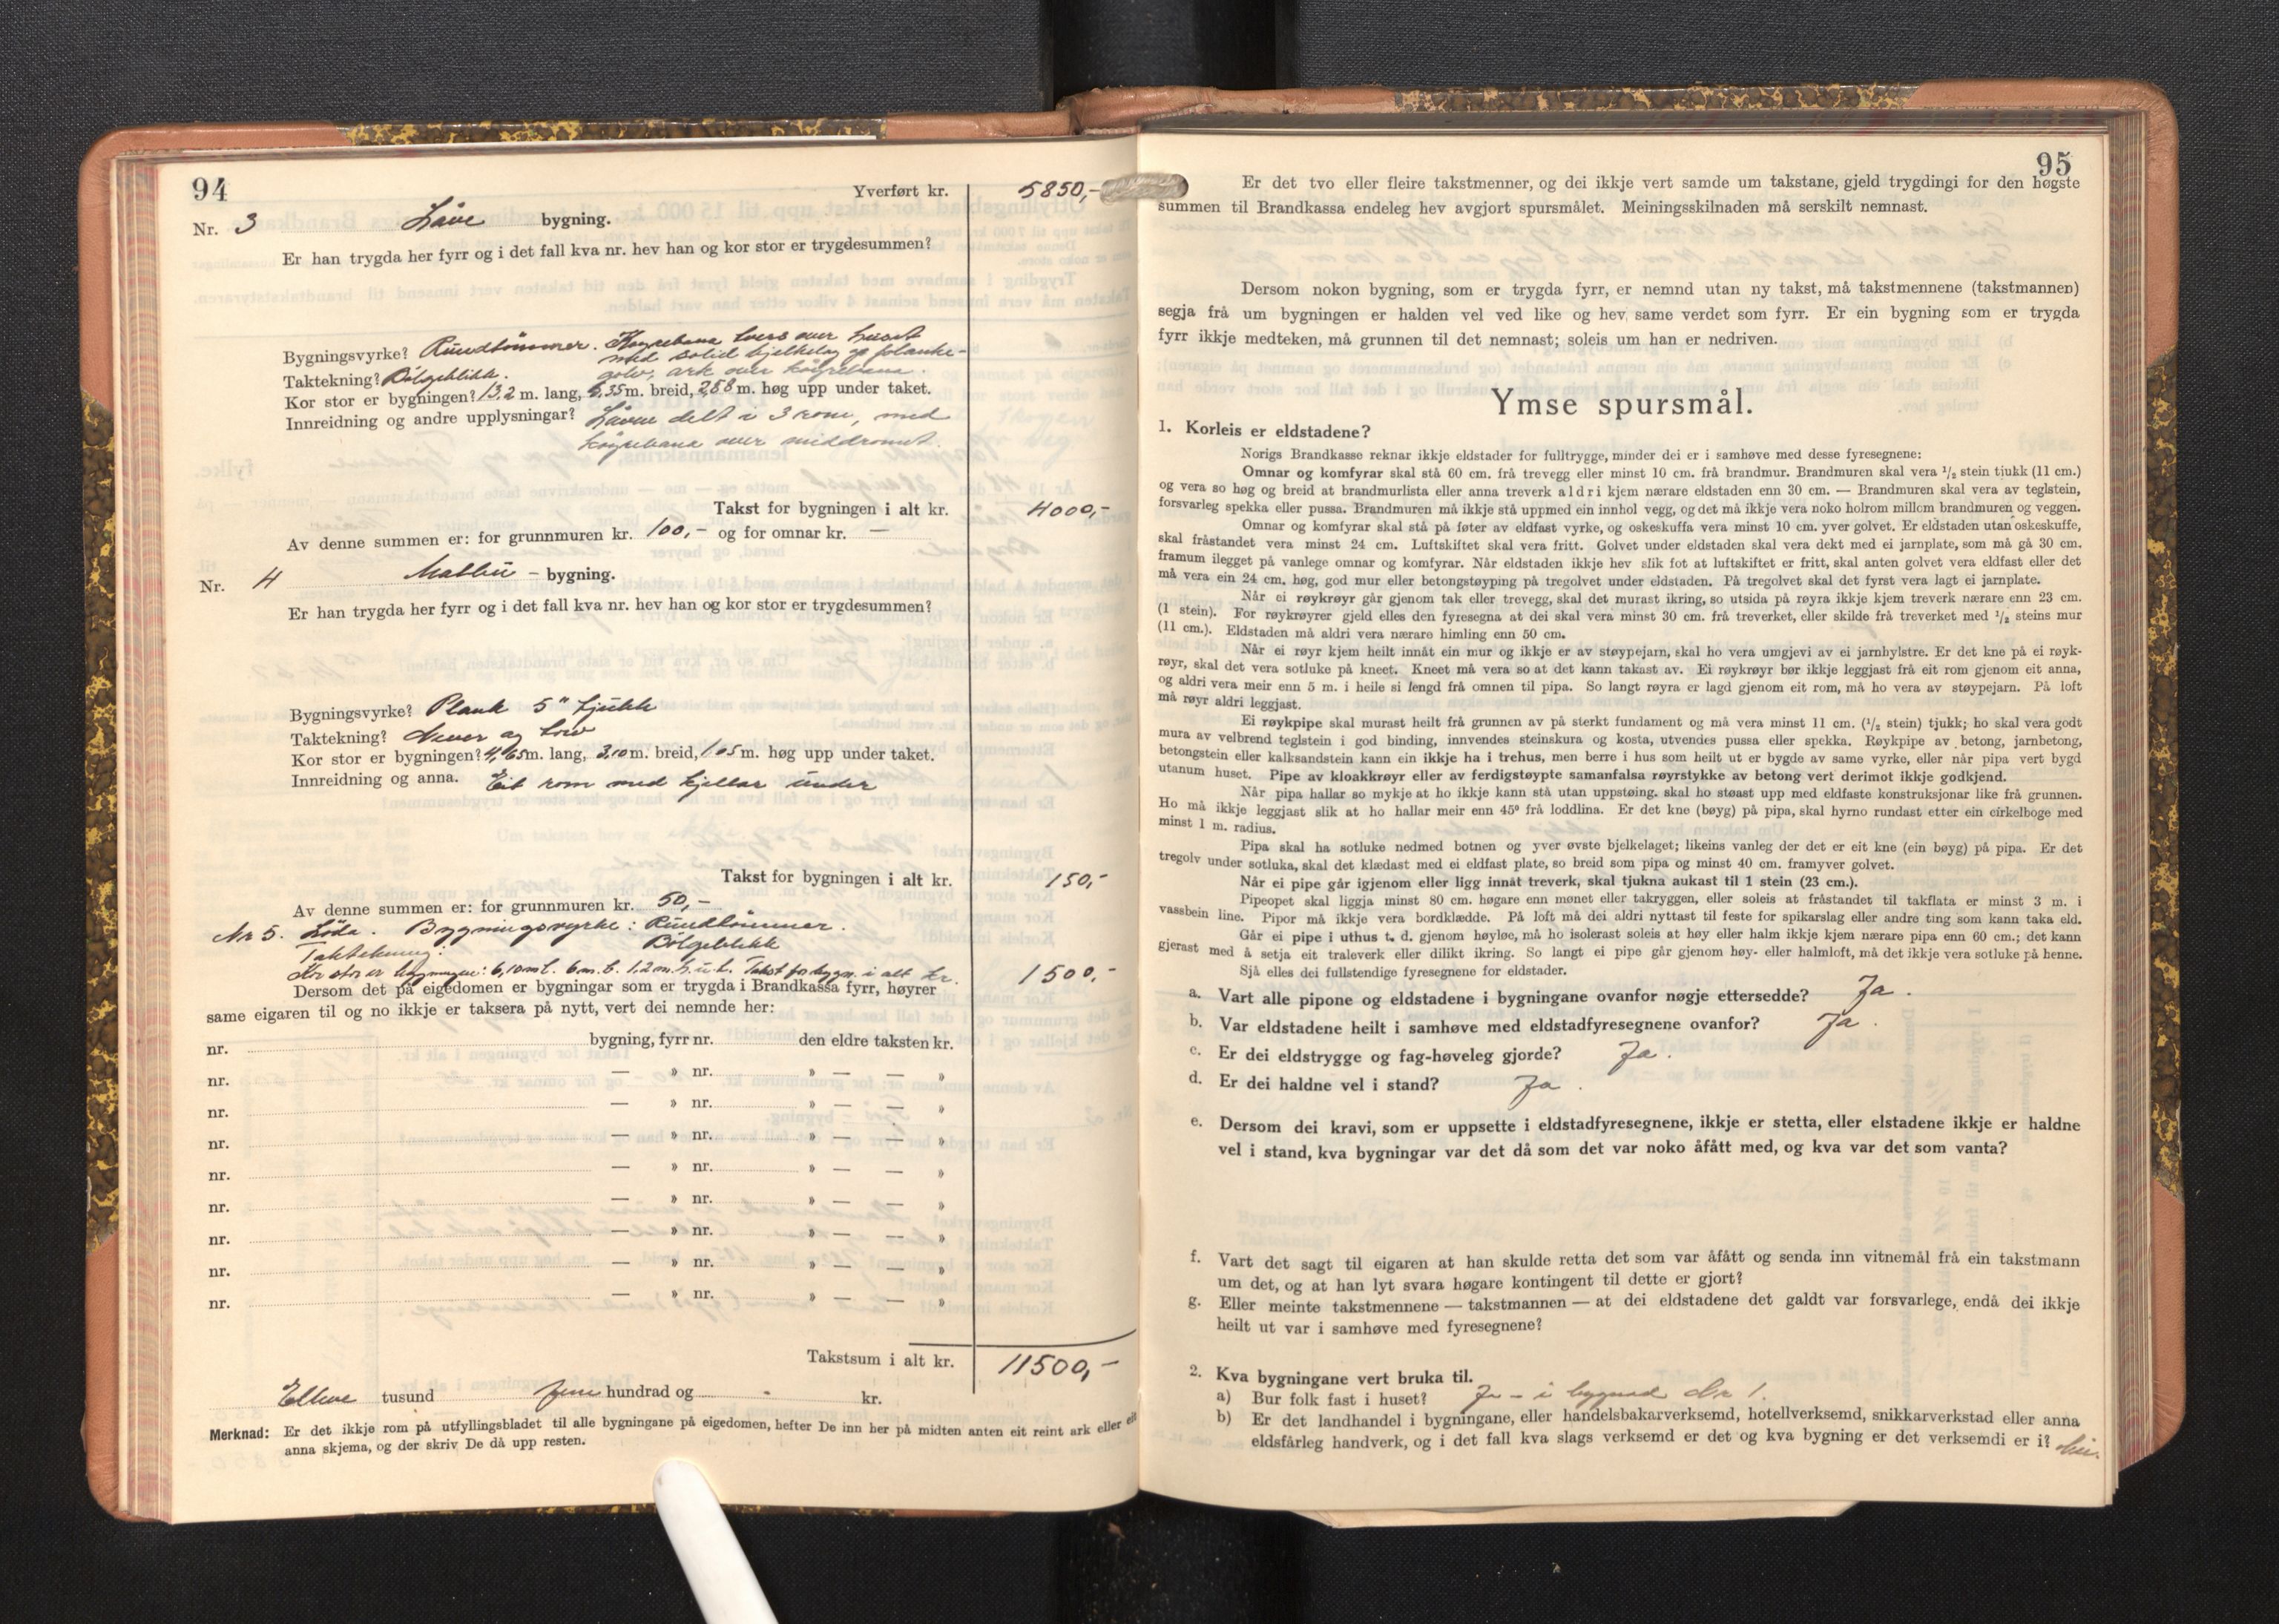 94
Yverført kr. 5850,-
Nr. 3 Låve bygning.
Er han trygda her fyrr og i det fall kva nr. hev han og kor stor er trygdesummen?
Bygningsvyrke? Rundtømmer. Køyrebana tvers over huset
med solid bjelkelag og planke-
Taktekning? Bølgeblikk. golv, ark over køyrebana.
Kor stor er bygningen? 13,2 m. lang, 6,35 m. breid, 2,58 m. høg upp under taket.
Innreidning og andre upplysningar? Låven delt i 3 rom, med
køyrebana over middromet.
Takst for bygningen i alt kr. 4000,-
Av denne summen er: for grunnmuren kr. 100,- og for omnar kr. —
Nr. 4 Matbu - bygning.
Er han trygda her fyrr og i det fall kva nr. hev han og kor stor er trygdesummen?
Bygningsvyrke? Plank 5" tjukk
Taktekning? Never og torv
Kor stor er bygningen? 4,65 m. lang, 3,10 m. breid, 1,05 m. høg upp under taket.
Innreidning og anna. Eit rom med kjellar under
Takst for bygningen i alt kr. 150,-
Av denne summen er: for grunnmuren kr. 50,-
Nr 5. Løda. Bygningsvyrke: Rundtømmer.
Taktekning: Bølgeblikk
Kor stor er bygningen: 6,10 m l. 6 m. b. 1,2 m. h. u. t. Takst for bygn. i alt kr. 1500,-
Dersom det på eigedomen er bygningar som er trygda i Brandkassa fyrr, høyrer
same eigaren til og no ikkje er taksera på nytt, vert dei nemnde her:
nr. bygning, fyrr nr. den eldre taksten kr.
nr. — » nr. » — — »
nr. — » nr. » — — »
nr. — » nr. » — — »
nr. — » nr. » — — »
nr. — » nr. » — — »
nr. — » nr. » — — »
nr. — » nr. » — — »
nr. — » nr. » — — »
Takstsum i alt kr. 11500,-
Elleve tusund fem hundrad og - kr.
Merknad: Er det ikkje rom på utfyllingsbladet til alle bygningane på eigedomen, hefter De inn her på midten anten eit reint ark eller eit
anna skjema, og der skriv De då upp resten.
95
Er det tvo eller fleire takstmenner, og dei ikkje vert samde um takstane, gjeld trygdingi for den høgste
summen til Brandkassa endeleg hev avgjort spursmålet. Meiningsskilnaden må serskilt nemnast.
Dersom nokon bygning, som er trygda fyrr, er nemnd utan ny takst, må takstmennene (takstmannen)
segja frå um bygningen er halden vel ved like og hev same verdet som fyrr. Er ein bygning som er trygda
fyrr ikkje medteken, må grunnen til det nemnast; soleis um han er nedriven.
Ymse spursmål.
1. Korleis er eldstadene?
Norigs Brandkasse reknar ikkje eldstader for fulltrygge, minder dei er i samhøve med desse fyresegnene:
Omnar og komfyrar skal stå 60 cm. frå trevegg eller minst 10 cm. frå brandmur. Brandmuren skal vera 1/2 stein tjukk (11 cm.)
og vera so høg og breid at brandmurlista eller anna treverk aldri kjem nærare eldstaden enn 30 cm. — Brandmuren skal vera av teglstein,
forsvarleg spekka eller pussa. Brandmuren må ikkje stå uppmed ein innhol vegg, og det må ikkje vera noko holrom millom brandmuren og veggen.
Omnar og komfyrar skal stå på føter av eldfast vyrke, og oskeskuffa vera minst 10 cm. yver golvet. Er eldstaden utan oskeskuffe,
skal fråstandet vera minst 24 cm. Luftskiftet skal vera fritt. Golvet under eldstaden skal vera dekt med ei jarnplate, som må gå 30 cm.
framum ilegget på vanlege omnar og komfyrar. Når eldstaden ikkje hev slik fot at luftskiftet er fritt, skal anten golvet vera eldfast eller det
må vera ein 24 cm. høg, god mur eller betongstøyping på tregolvet under eldstaden. På tregolvet skal det fyrst vera lagt ei jarnplate.
Når ei røykrøyr går gjenom tak eller trevegg, skal det murast ikring, so utsida på røyra ikkje kjem treverk nærare enn 23 cm.
(1 stein). For røykrøyrer gjeld elles den fyresegna at dei skal vera minst 30 cm. frå treverket, eller skilde frå treverket med 1/2 steins mur
(11 cm.). Eldstaden må aldri vera nærare himling enn 50 cm.
Når ei røyr kjem heilt innåt ein mur og ikkje er av støypejarn, skal ho vera umgjevi av ei jarnhylstre. Er det kne på ei røyk-
røyr, skal det vera sotluke på kneet. Kneet må vera so at det kann takast av. Ei røykrøyr bør ikkje leggjast frå eit rom gjenom eit anna,
og aldri vera meir enn 5 m. i heile si lengd frå omnen til pipa. So langt røyra er lagd gjenom eit rom, må ho vera av støypejarn. På loft
må røyr aldri leggjast.
Ei røykpipe skal murast heilt frå grunnen av på sterkt fundament og må vera minst 11 cm. (1/2 stein) tjukk; ho skal vera godt
mura av velbrend teglstein i god binding, innvendes steinskura og kosta, utvendes pussa eller spekka. Røykpipe av betong, jarnbetong,
betongstein eller kalksandstein kann ein ikkje ha i trehus, men berre i hus som heilt ut er bygde av same vyrke, eller når pipa vert bygd
utanum huset. Pipe av kloakkrøyr eller av ferdigstøypte samanfalsa røyrstykke av betong vert derimot ikkje godkjend.
Når pipa hallar so mykje at ho ikkje kann stå utan uppstøing. skal ho støast upp med eldfaste konstruksjonar like frå grunnen.
Ho må ikkje leggjast slik at ho hallar meir enn 45° frå loddlina. Er det kne (bøyg) på pipa, skal hyrno rundast etter ein cirkelboge med
minst 1 m. radius.
Pipa skal ha sotluke nedmed botnen og yver øvste bjelkelaget; likeins vanleg der det er eit kne (ein bøyg) på pipa. Er det
tregolv under sotluka, skal det klædast med ei eldfast plate, so breid som pipa og minst 40 cm. framyver golvet.
Når ei pipe går igjenom eller ligg innåt treverk, skal tjukna aukast til 1 stein (23 cm.).
Pipeopet skal liggja minst 80 cm. høgare enn mønet eller takryggen, eller soleis at fråstandet til takflata er minst 3 m. i
vassbein line. Pipor må ikkje vera bordklædde. På loft må dei aldri nyttast til feste for spikarslag eller andre ting som kann taka eld.
Går ei pipe i uthus t. d. gjenom høyløe, må ho isolerast soleis at høy eller halm ikkje kjem nærare pipa enn 60 cm.; det kann
gjerast med å setja eit traleverk eller dilikt ikring. So langt ei pipe går gjenom høy- eller halmloft, må det ikkje vera sotluke på henne.
Sjå elles dei fullstendige fyresegnene for eldstader.
a. Vart alle pipone og eldstadene i bygningane ovanfor nøgje ettersedde? Ja.
b. Var eldstadene heilt i samhøve med eldstadfyresegnene ovanfor? Ja.
c. Er dei eldstrygge og fag-høveleg gjorde? Ja.
d. Er dei haldne vel i stand? Ja.
e. Dersom dei kravi, som er uppsette i eldstadfyresegnene, ikkje er stetta, eller elstadene ikkje er haldne
vel i stand, kva bygningar var det då som det var noko åfått med, og kva var det som vanta?
f. Vart det sagt til eigaren at han skulde retta det som var åfått og senda inn vitnemål frå ein takstmann
um det, og at han lyt svara høgare kontingent til dette er gjort?
g. Eller meinte takstmennene — takstmannen — at dei eldstadene det galdt var forsvarlege, endå dei ikkje
heilt ut var i samhøve med fyresegnene?
2. Kva bygningane vert bruka til.
a) Bur folk fast i huset? Ja - i bygnad Nr 1.
b) Er det landhandel i bygningane, eller handelsbakarverksemd, hotellverksemd, snikkarverkstad eller anna
eldsfårleg handverk, og i det fall kva slags verksemd er det og kva bygning er det verksemdi er i? Nei.